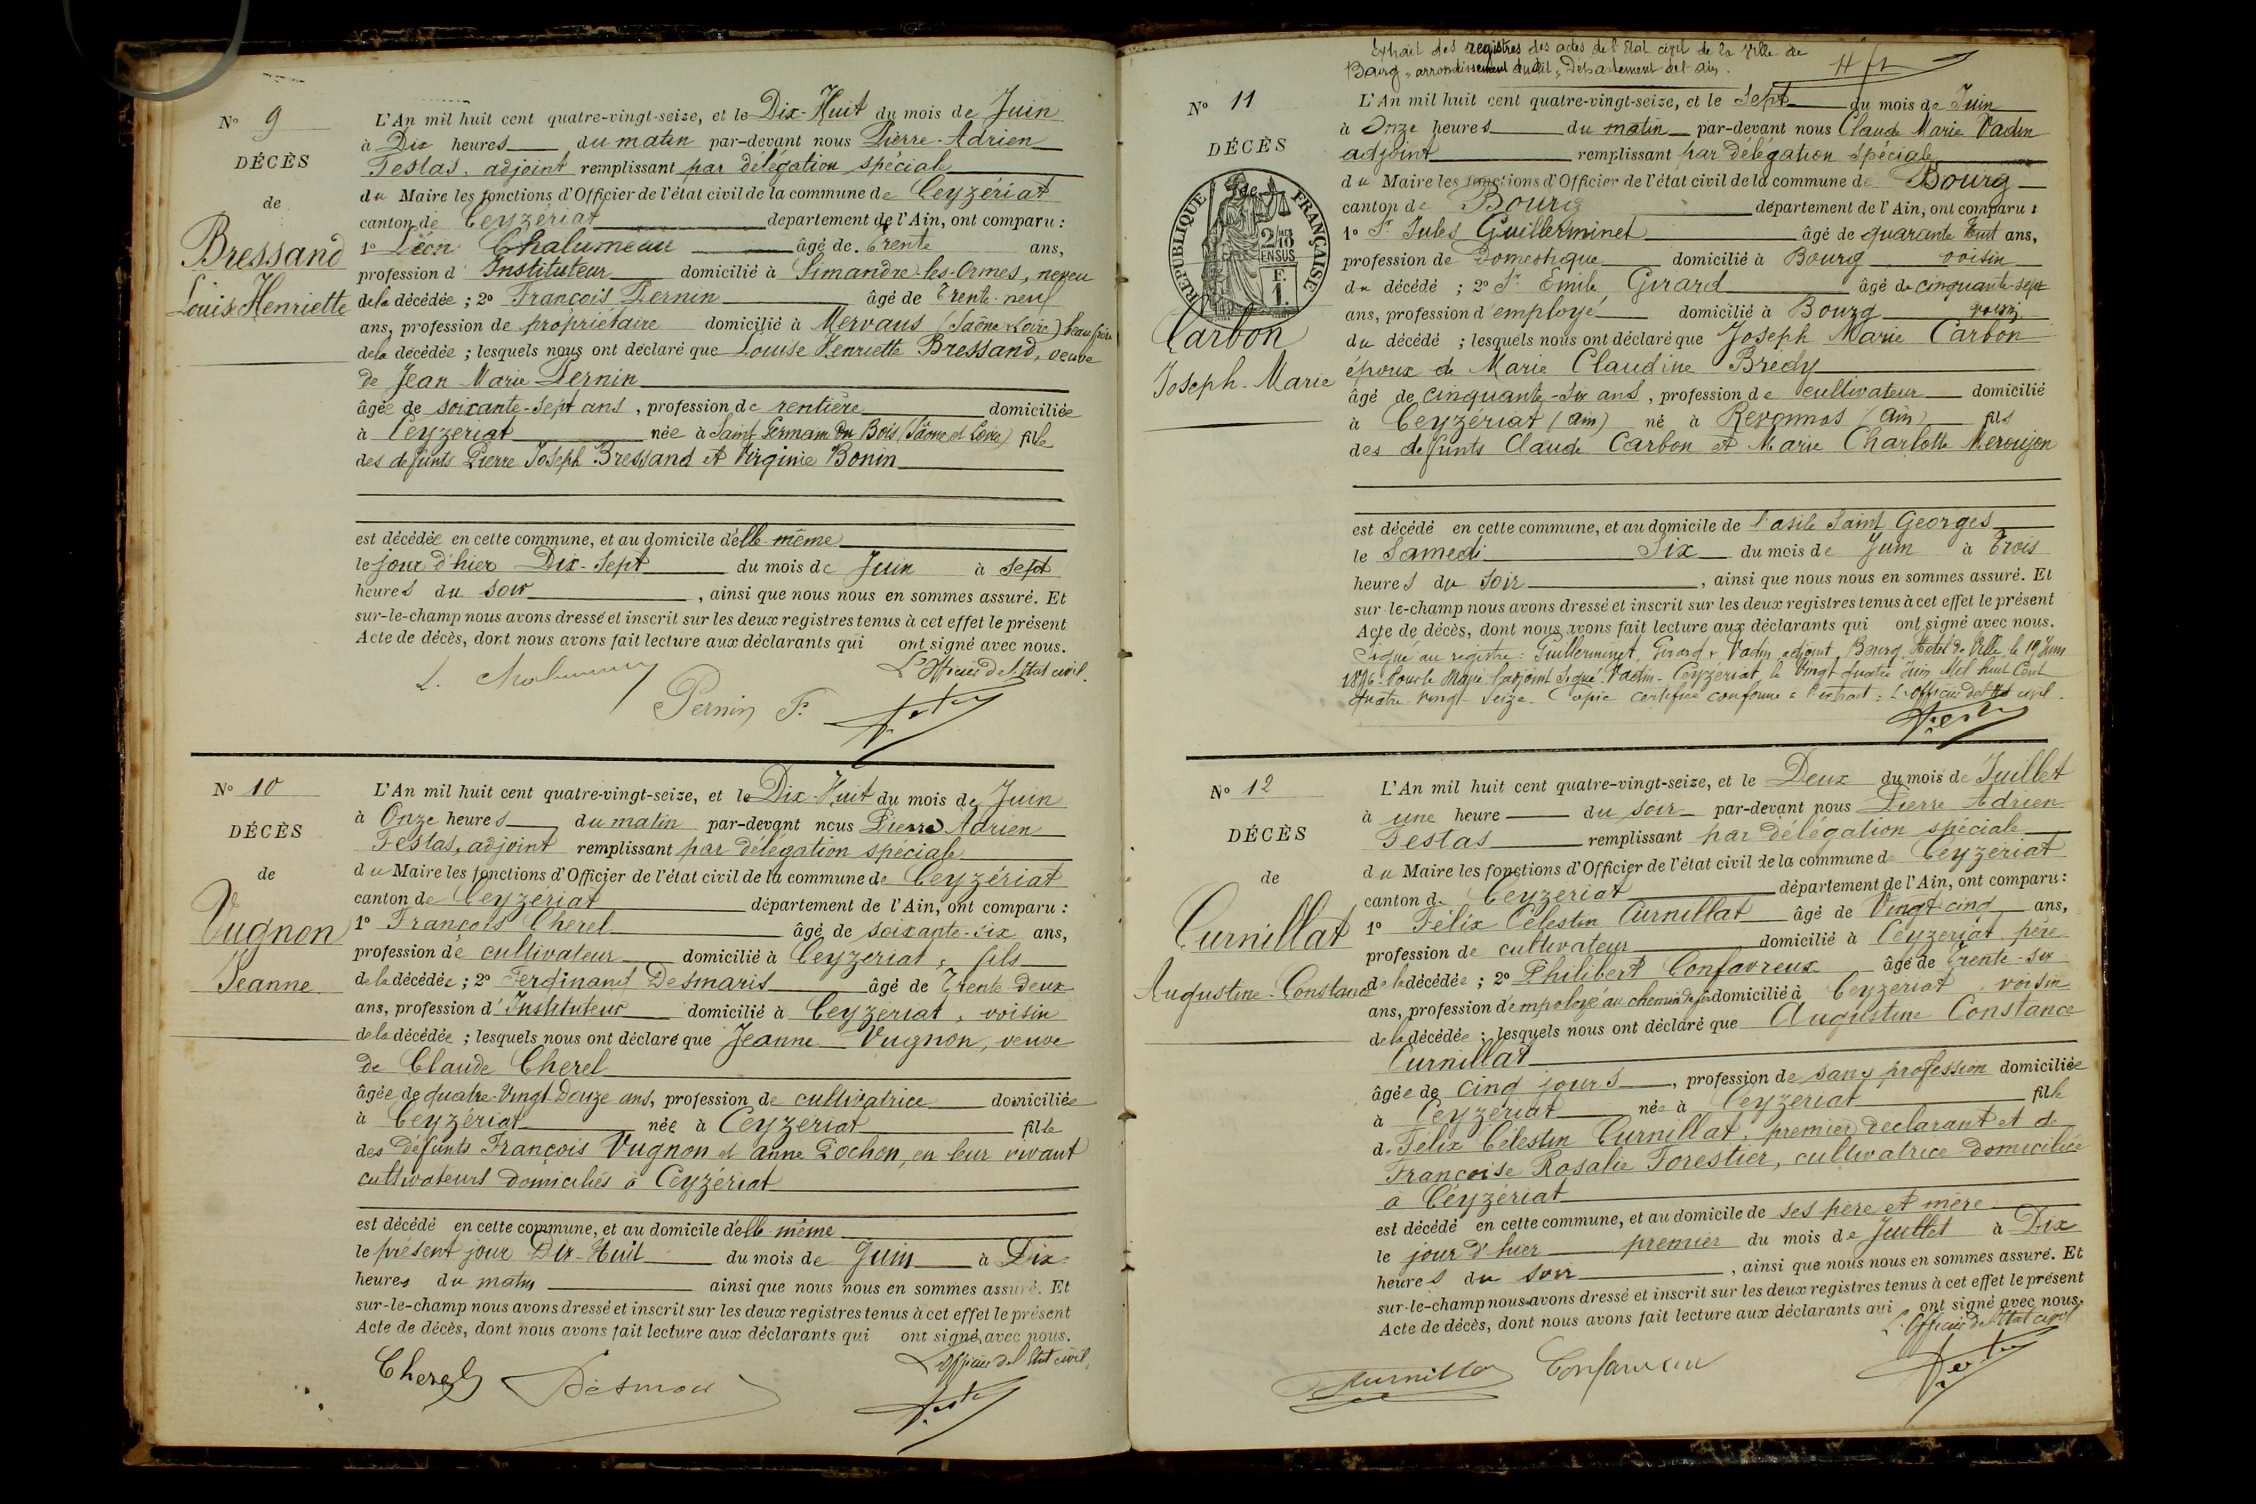 Nº 9
DÉCÈS
de
Bressand
Louise Henriette
L'An mil huit cent quatre-vingt-seize, et le Dix-Huit du mois de Juin
à Dix heures du matin par-devant nous Pierre-Adrien
Festas, adjoint remplissant par délégation spéciale
du Maire les fonctions d'Officier de l'état civil de la commune de Ceyzériat
canton de Ceyzériat département de l'Ain, ont comparu :
1º Léon Chalumeau âgé de Trente ans,
profession d'Instituteur domicilié à Simandre-les-Ormes, neveu
de la décédée ; 2º François Pernin âgé de Trente-neuf
ans, profession de propriétaire domicilié à Mervans (Saône & Loire) beau frère
de la décédée ; lesquels nous ont déclaré que Louise Henriette Bressand, veuve
de Jean Marie Pernin
âgée de soixante-sept ans, profession de rentière domiciliée
à Ceyzériat née à Saint Germain du Bois (Saône et Loire) fille
des défunts Pierre Joseph Bressand et Virginie Bonin
est décédée en cette commune, et au domicile d'elle-même
le jour d'hier Dix-Sept du mois de Juin à sept
heures du soir, ainsi que nous nous en sommes assuré. Et
sur-le-champ nous avons dressé et inscrit sur les deux registres tenus à cet effet le présent
Acte de décès, dont nous avons fait lecture aux déclarants qui ont signé avec nous.
L'Officier de l'Etat civil.
Pernin F.
Nº 10
DÉCÈS
de
Vugnon
Jeanne
L'An mil huit cent quatre-vingt-seize, et le Dix-Huit du mois de Juin
à Onze heures du matin par-devant nous Pierre Adrien
Festas, adjoint remplissant par délégation spéciale
du Maire les fonctions d'Officier de l'état civil de la commune de Ceyzériat
canton de Ceyzériat département de l'Ain, ont comparu :
1º François Cherel âgé de soixante-six ans,
profession de cultivateur domicilié à Ceyzériat, fils
de la décédée ; 2º Ferdinand Desmaris âgé de Trente deux
ans, profession d'Instituteur domicilié à Ceyzériat, voisin
de la décédée ; lesquels nous ont déclaré que Jeanne Vugnon, veuve
de Claude Cherel
âgée de quatre-Vingt-Douze ans, profession de cultivatrice domiciliée
à Ceyzériat née à Ceyzériat fille
des défunts François Vugnon et Anne Pochon, en leur vivant
cultivateurs domiciliés à Ceyzériat
est décédé en cette commune, et au domicile d'elle-même
le présent jour Dix-Huit du mois de Juin à Dix
heures du matin ainsi que nous nous en sommes assuré. Et
sur-le-champ nous avons dressé et inscrit sur les deux registres tenus à cet effet le présent
Acte de décès, dont nous avons fait lecture aux déclarants qui ont signé avec nous.
L'Officier de l'Etat civil,
Cherel
Extrait des registres des actes de l'Etat civil de la Ville de
Bourg, arrondissement dudit, Département de l'Ain.
Nº 11
DÉCÈS
de
RÉPUBLIQUE FRANÇAISE
2/10 EN SUS
F. 1.
Carbon
Joseph-Marie
L'An mil huit cent quatre-vingt-seize, et le Sept du mois de Juin
à Onze heures du matin par-devant nous Claude Marie Vadin
adjoint remplissant par délégation spéciale
du Maire les fonctions d'Officier de l'état civil de la commune de Bourg
canton de Bourg département de l'Ain, ont comparu :
1º Sr. Jules Guillerminet âgé de quarante huit ans,
profession de Domestique domicilié à Bourg voisin
du décédé ; 2º Sr. Emile Girard âgé de cinquante-sept
ans, profession d'employé domicilié à Bourg voisin
du décédé ; lesquels nous ont déclaré que Joseph Marie Carbon
époux de Marie Claudine Brédy
âgé de cinquante-six ans, profession de cultivateur domicilié
à Ceyzériat (Ain) né à Revonnas (Ain) fils
des défunts Claude Carbon et Marie Charlotte
est décédé en cette commune, et au domicile de l'asile Saint Georges
le Samedi Six du mois de Juin à Trois
heures du soir, ainsi que nous nous en sommes assuré. Et
sur-le-champ nous avons dressé et inscrit sur les deux registres tenus à cet effet le présent
Acte de décès, dont nous avons fait lecture aux déclarants qui ont signé avec nous.
Signé au registre : Guillerminet, Girard & Vadin adjoint, Bourg, Hôtel de Ville, le 19 Juin
1896. Pour le Maire l'adjoint signé : Vadin. Ceyzériat, le Vingt quatre Juin Mil huit Cent
quatre vingt seize. Copie certifiée conforme à l'extrait : L'Officier de l'Etat civil.
Nº 12
DÉCÈS
de
Curnillat
Augustine-Constance
L'An mil huit cent quatre-vingt-seize, et le Deux du mois de Juillet
à une heure du soir par-devant nous Pierre Adrien
Festas remplissant par délégation spéciale
du Maire les fonctions d'Officier de l'état civil de la commune de Ceyzériat
canton de Ceyzériat département de l'Ain, ont comparu :
1º Félix Célestin Curnillat âgé de Vingt-cinq ans,
profession de cultivateur domicilié à Ceyzériat, père
de la décédée ; 2º Philibert Confavreux âgé de Trente-six
ans, profession d'employé au chemin de fer domicilié à Ceyzériat, voisin
de la décédée ; lesquels nous ont déclaré que Augustine Constance
Curnillat
âgée de cinq jours, profession de sans profession domiciliée
à Ceyzériat née à Ceyzériat fille
de Félix Célestin Curnillat, premier déclarant et de
Françoise Rosalie Forestier, cultivatrice domiciliée
à Céyzériat
est décédé en cette commune, et au domicile de ses père et mère
le jour d'hier premier du mois de Juillet à Dix
heures du soir, ainsi que nous nous en sommes assuré. Et
sur-le-champ nous avons dressé et inscrit sur les deux registres tenus à cet effet le présent
Acte de décès, dont nous avons fait lecture aux déclarants qui ont signé avec nous.
L'Officier de l'Etat civil
Curnillat Confavreux